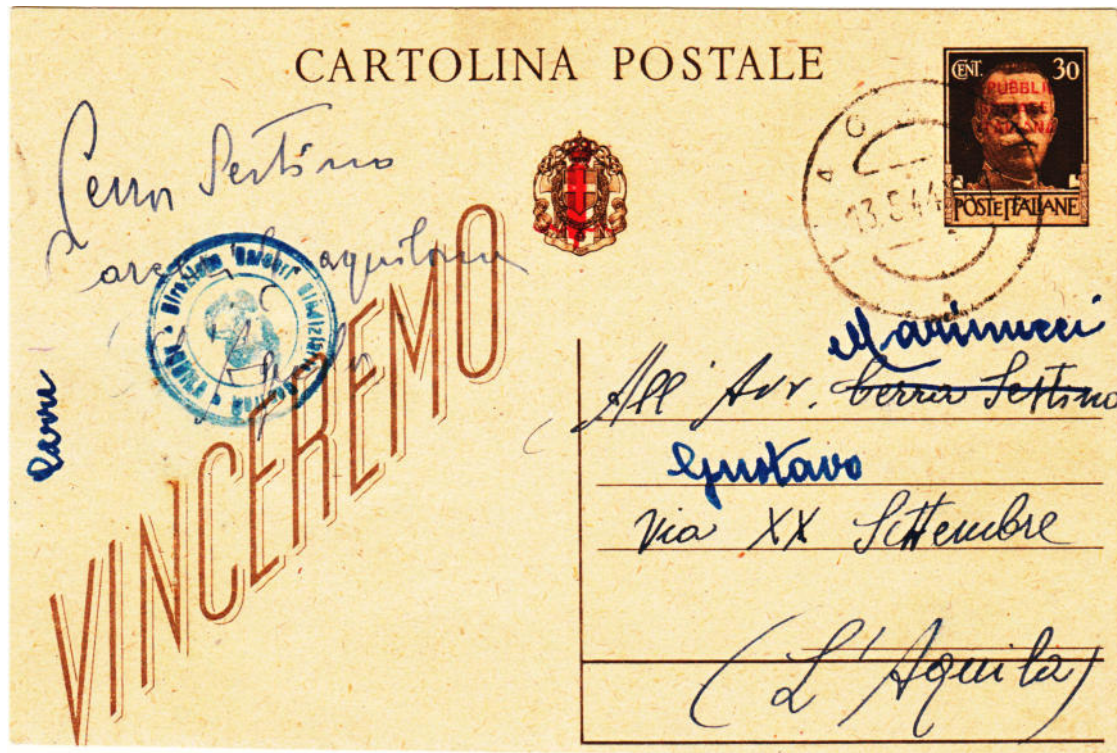 CARTOLINA POSTALE
CENT. 30
PUBBLI
ITALIANA
POSTE ITALIANE
L'AQ
13.5.44
Serra Sestino
aquilana
Direzione Carceri Giudiziarie
VINCEREMO
Marinucci
All' Avv. Cerra Sestino
Gustavo
Via XX Settembre
(L'Aquila)